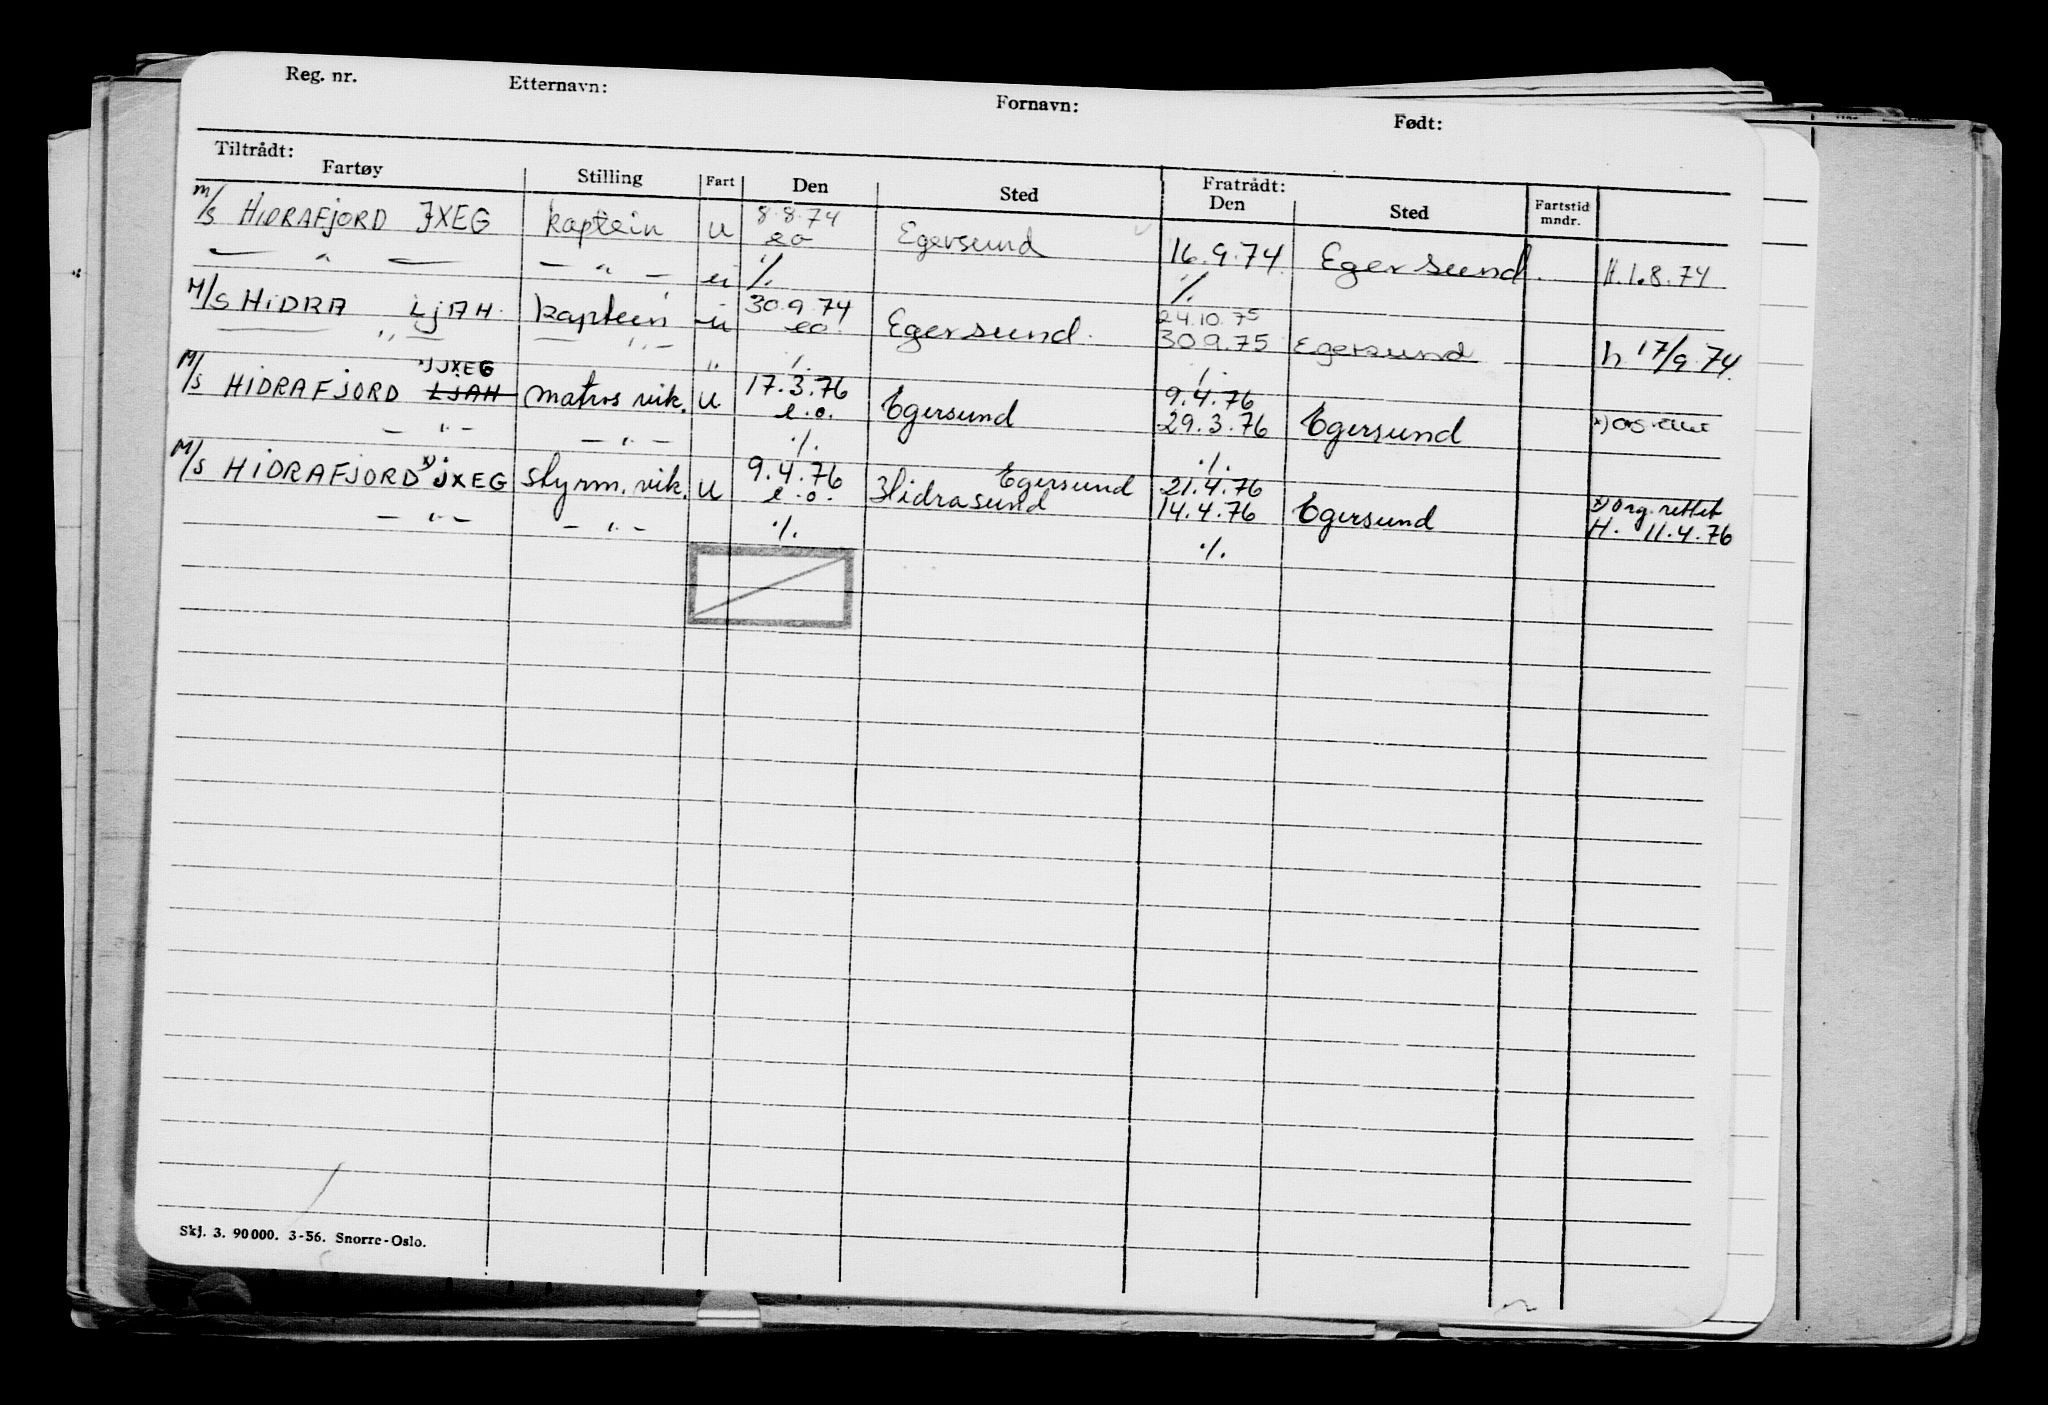 Reg. nr. Etternavn: Fornavn: Født:
Tiltrådt: Fratrådt:
Fartøy Stilling Fart Den Sted Den Sted Fartstid mndr.
M/S HIDRAFJORD JXEG kaptein u 8.8.74 eo Egersund 16.9.74 Egersund. H.1.8.74
— " — — " — ./. ./.
M/S HIDRA LJAH kaptein u 30.9.74 eo Egersund. 24.10.75 30.9.75 Egersund h 17/9.74.
— " — — " — " ./. ./.
M/S HIDRAFJORD x) JXEG LJAH matros vik. u 17.3.76 e.o. Egersund 9.4.76 29.3.76 Egersund x)
— " — — " — ./. ./.
M/S HIDRAFJORD x) JXEG styrm. vik. u 9.4.76 e.o. Egersund Hidrasund 21.4.76 14.4.76 Egersund x) org. rettet H. 11.4.76
— " — — " — ./. ./.
Skj. 3. 90000. 3-56. Snorre-Oslo.